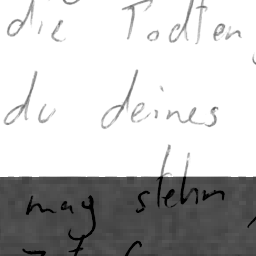 die Todten,
du deines
mag stehm,